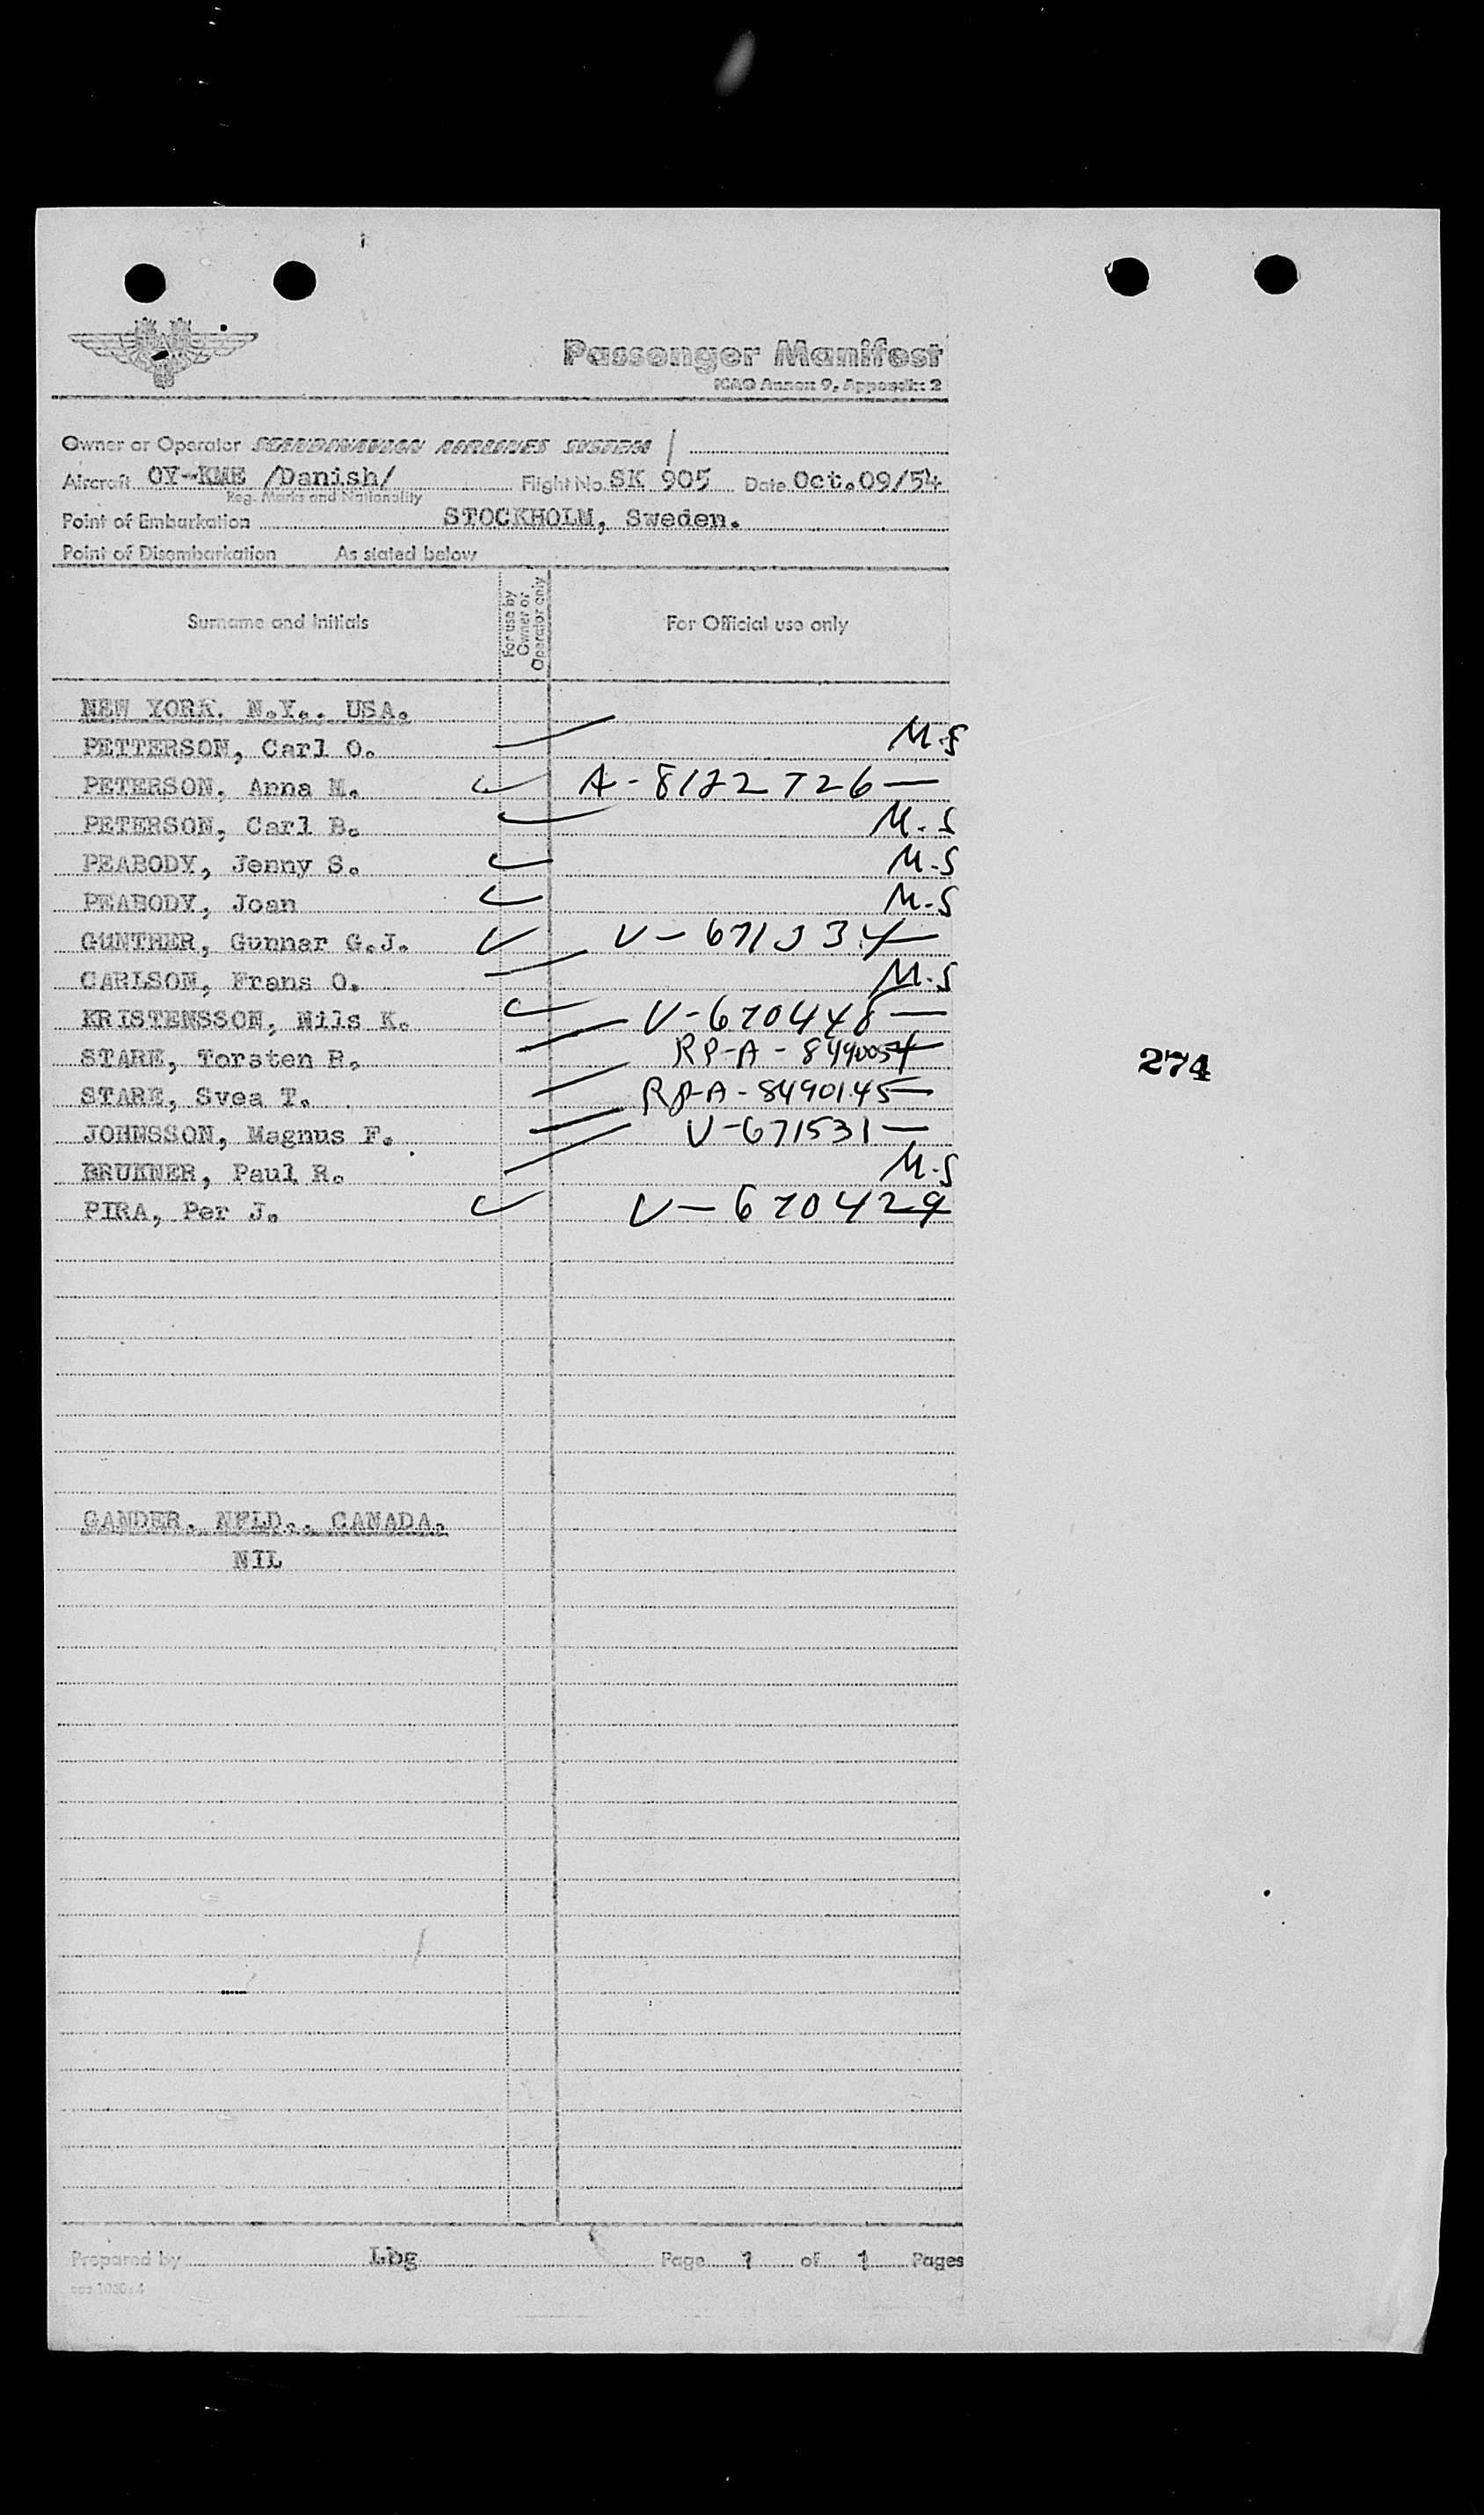 Passenger Manifest
ICAO Annex 9, Appendix 2
Owner or Operator SCANDINAVIAN AIRLINES SYSTEM /
Aircraft OY-KME /Danish/ Flight No. SK 905 Date Oct.09/54
Reg. Marks and Nationality
Point of Embarkation STOCKHOLM, Sweden.
Point of Disembarkation As stated below
Surname and Initials For use by Owner or Operator only For Official use only
NEW YORK. N.Y.. USA.
PETTERSON, Carl O. M.S
PETERSON, Anna M. A-8122726—
PETERSON, Carl B. M.S
PEABODY, Jenny S. M-S
PEABODY, Joan M-S
GUNTHER, Gunnar G.J. V-671334—
CARLSON, Frans O. M.S
KRISTENSSON, Nils K. V-670448—
STARE, Torsten B. RP-A-8490054—
STARE, Svea T. RP-A-8490145—
JOHNSSON, Magnus F. V-671531—
BRUKNER, Paul R. M.S
PIRA, Per J. V-670429
274
GANDER. NFLD.. CANADA.
NIL
Prepared by Lbg Page 1 of 1 Pages